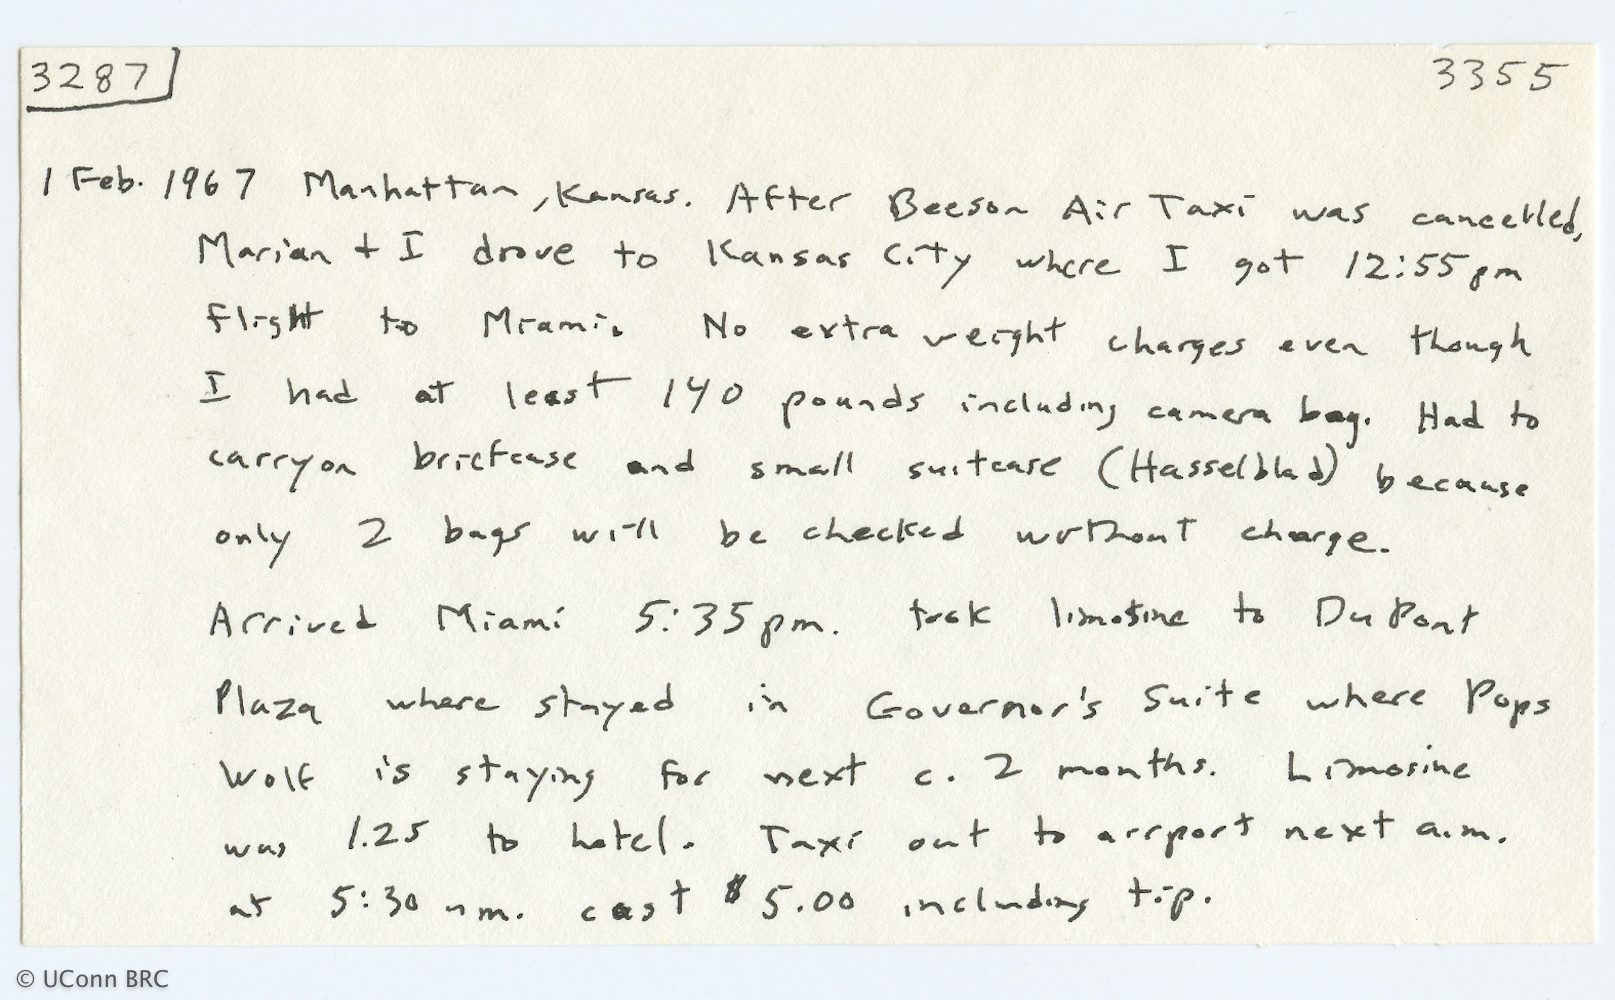 3287 3355
1 Feb. 1967 Manhattan, Kansas. After Beeson Air Taxi was cancelled,
Marian + I drove to Kansas City where I got 12:55 pm
flight to Miami. No extra weight charges even though
I had at least 140 pounds including camera bag. Had to
carry on briefcase and small suitcase (Hasselblad) because
only 2 bags will be checked without charge.
Arrived Miami 5:35 pm. took limosine to DuPont
Plaza where stayed in Governor's Suite where Pops
Wolf is staying for next c. 2 months. Limosine
was 1.25 to hotel. Taxi out to airport next a.m.
at 5:30 a.m. cost $5.00 including tip.
© UConn BRC